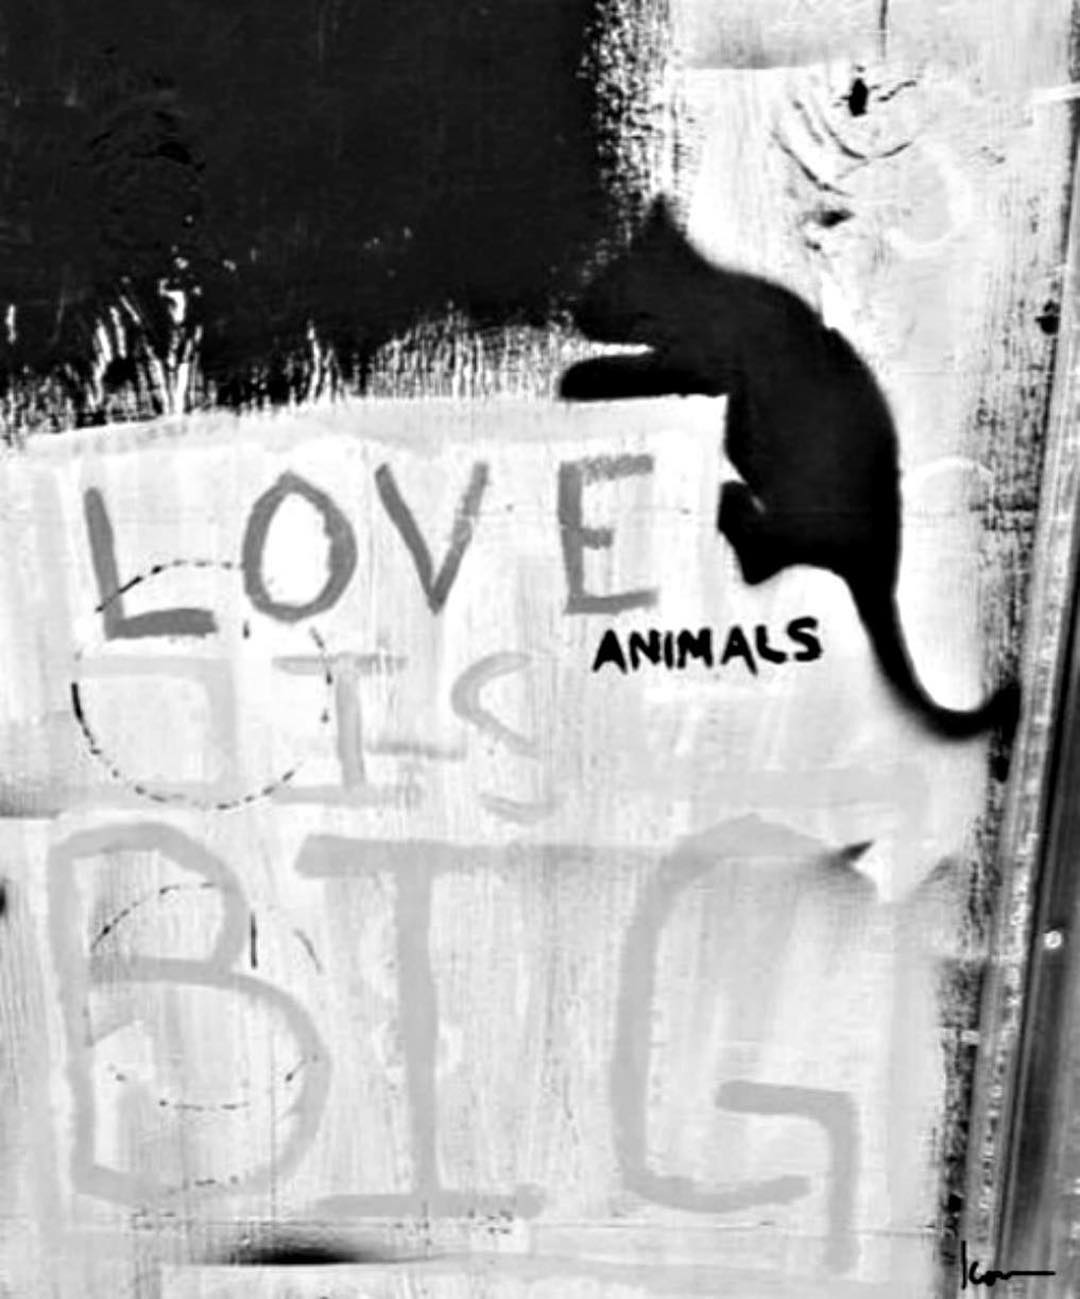 LOVE
ANIMALS
IS
BIG